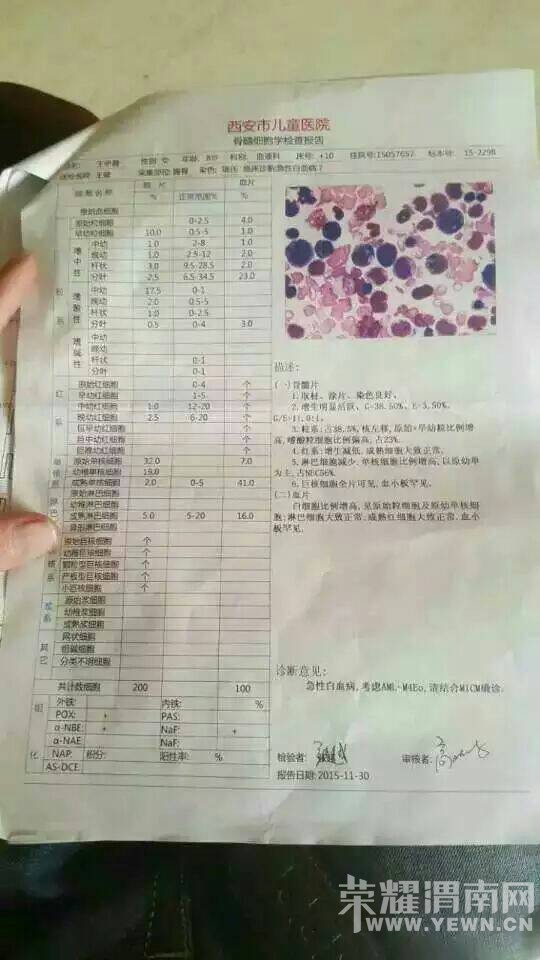 西安市儿童医院
骨髓细胞学检查报告
性别: 女 年龄: 科别: 血液科 床号: +10 住院号: 15057657 标本号: 15-2298
采集部位: 染色: 瑞氏 临床诊断: 急性白血病?
细胞名称 髓片 % 正常范围% 血片 %
原始血细胞
原始粒细胞 0-2.5 4.0
早幼粒细胞 10.0 0.5-5 1.0
粒系
嗜中性
中幼 1.0 2-8 1.0
晚幼 1.0 2.5-12 2.0
杆状 3.0 9.5-28.5 2.0
分叶 2.5 6.5-34.5 23.0
嗜酸性
中幼 17.5 0-1
晚幼 2.0 0.5-5
杆状 1.0 0-2.5
分叶 0.5 0-4 3.0
嗜碱性
中幼
晚幼
杆状 0-1
分叶 0-1
红系
原始红细胞 0-4 个
早幼红细胞 1-5 个
中幼红细胞 1.0 12-20 个
晚幼红细胞 2.5 6-20 个
巨早幼红细胞 个
巨中幼红细胞 个
巨晚幼红细胞 个
原始单核细胞 32.0 7.0
幼稚单核细胞 19.0
成熟单核细胞 2.0 0-5 41.0
原始淋巴细胞
幼稚淋巴细胞
成熟淋巴细胞 5.0 5-20 16.0
异形淋巴细胞
原始巨核细胞 个
幼稚巨核细胞 个
颗粒型巨核细胞 个
产板型巨核细胞 个
小巨核细胞 个
原始浆细胞
幼稚浆细胞
成熟浆细胞
其它
网状细胞
组织嗜碱细胞
分类不明细胞
共计数细胞 200 100
组化
外铁: 内铁: %
POX: + PAS:
α-NBE: + NaF: +
α-NAE: NaF:
NAP: 积分: 阳性率: %
AS-DCE:
描述:
(一)骨髓片
1.取材、涂片、染色良好。
2.增生明显活跃, G-38.50%, E-3.50%,
G/E=11.0:1。
3.粒系:占38.5%,核左移,原始+早幼粒比例增
高,嗜酸粒细胞比例偏高,占23%。
4.红系:增生减低,成熟细胞大致正常。
5.淋巴细胞减少,单核细胞比例增高,以原幼单
为主,占NEC56%。
6.巨核细胞全片可见,血小板罕见。
(二)血片
白细胞比例增高,见原始粒细胞及原幼单核细
胞;淋巴细胞大致正常,成熟红细胞大致正常,血小
板罕见。
诊断意见:
急性白血病,考虑AML-M4Eo,请结合MICM确诊。
检验者: 审核者:
报告日期: 2015-11-30
荣耀渭南网
WWW.YEWN.CN